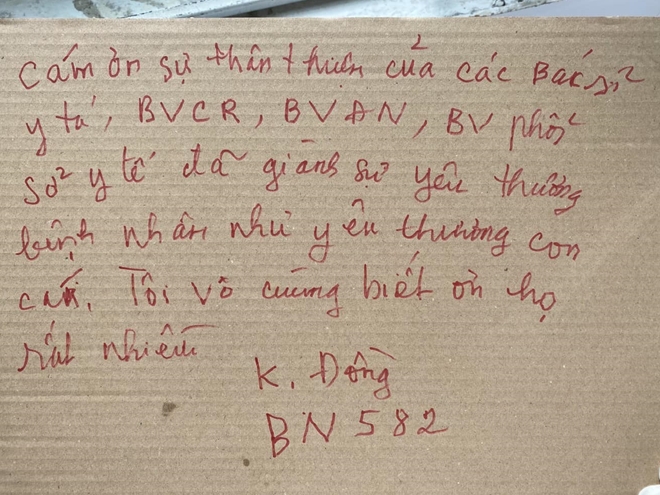 Cám ơn sự thân thiện của các Bác sỉ
y tá, BVCR, BVAN, BV phổi
sở y tế đã giành sự yêu thương
bệnh nhân như yêu thương con
cái. Tôi vô cùng biết ơn họ
rất nhiều
K. Đồng
BN 582